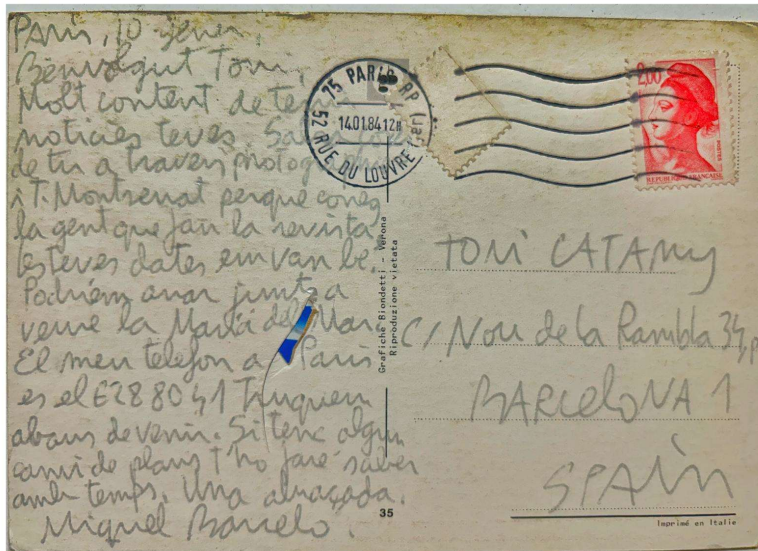 Paris, 10 gener,
Benvolgut Toni,
Molt content de tenir
noticies teves.
de tu a través
i T. Montserrat perque conec
la gent que fan la revista.
Les teves dates em van bé.
Podriem anar junts a
veure la Maria del Mar.
El meu telefon a Paris
es el 6288041 Truquem
abans de venir. Si tenc algun
canvi de plans t'ho faré saber
amb temps. Una abraçada.
Miquel Barceló.
75 PARIS RP
14.01.84 12H
52 RUE DU LOUVRE
2,00
POSTES
REPUBLIQUE FRANÇAISE
Grafiche Biondetti - Verona
Riproduzione vietata
TONI CATANY
C/ Nou de la Rambla 34,
BARCELONA 1
SPAIN
35
Imprimé en Italie